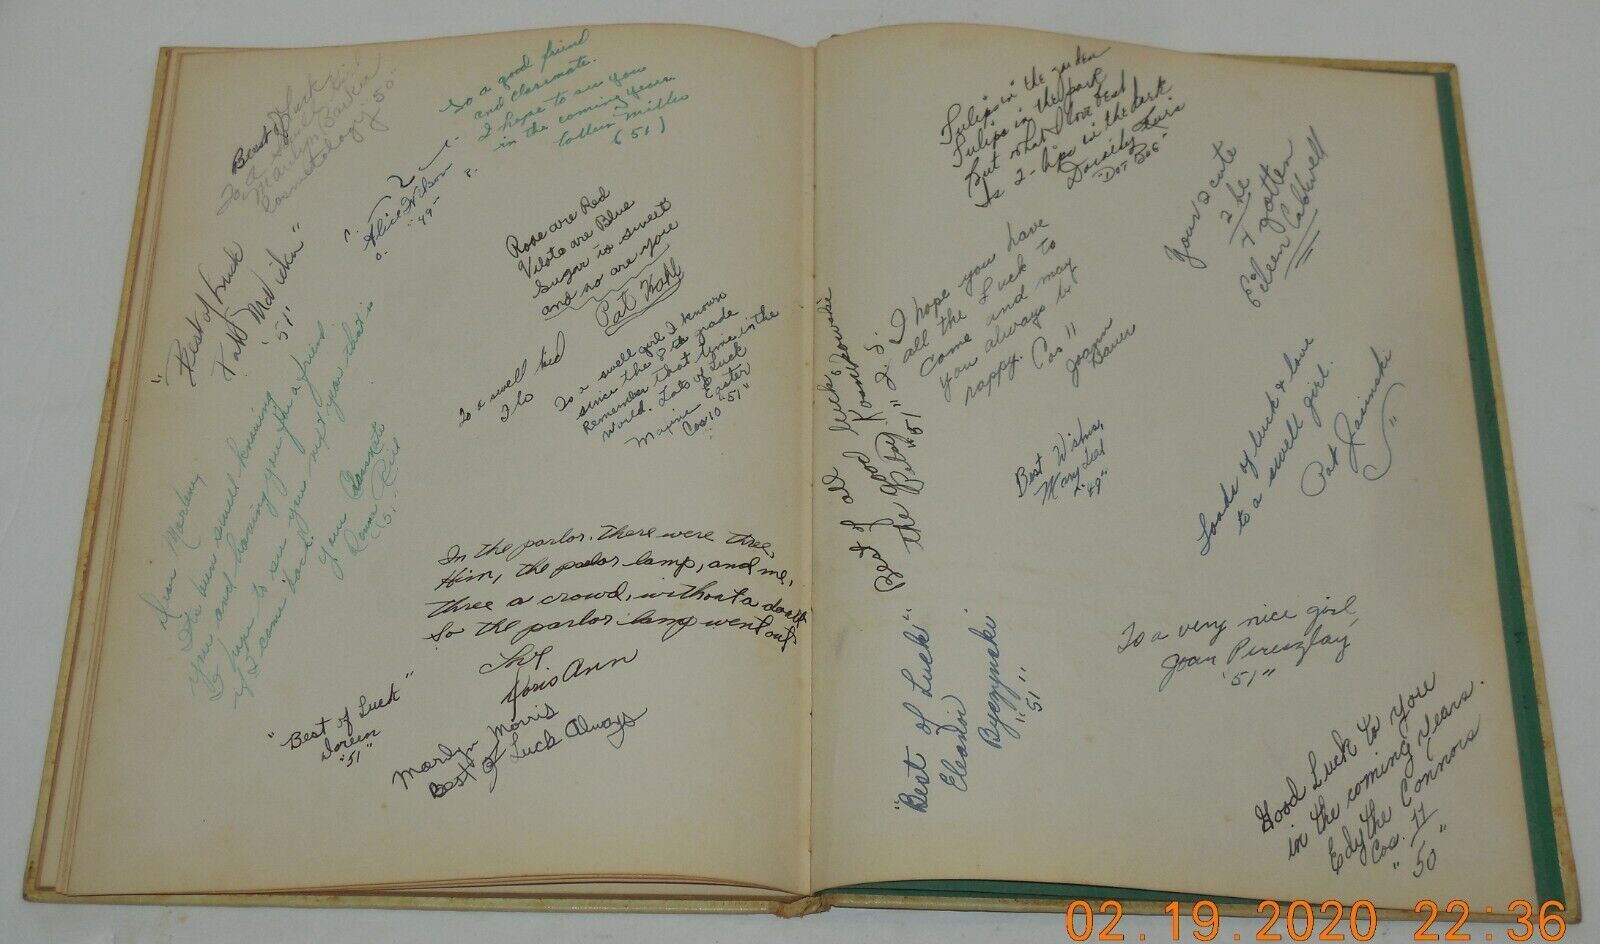 Best of Luck
To a Swell Girl
Marilyn Barker
Cosmetology '50"
To a good friend
and classmate.
I hope to see you
in the coming years.
Miller
(51)
Alice Wilson
"49"
"Best of Luck
Patt
'51"
Rose are Red
Vilots are Blue
Sugar is sweet
and so are you
Pat Kahl
To a swell kid
To a swell girl I known
since the 8th grade
Remember that time in the
World. Lots of Luck
Maxine
Cos 10 "51"
Dear Marleny
It's been swell knowing
you and having you for a friend
hope to see you next year that is
if I come back.
Your Classmate
In the parlor, there were three,
Him, the parlor lamp, and me,
three a crowd, without a doubt
So the parlor lamp went out.
Doris Ann
"Best of Luck"
Doreen
"51"
Marlyn Morris
Best of Luck Always
Tulips in the garden
Tulips in the park
But what I love best
Is 2-lips in the dark
Dorothy
Your 2 cute
2 be
4 gotten
Eileen Caldwell
I hope you have
all the Luck to
come and may
you always be
happy. Cos 11
Joann
Bauer
Best of all luck,
"51"
Best Wishes,
Mary
"49"
Loads of luck & love
to a swell girl.
Pat Jasinski
"Best of Luck"
Eleanor
"51"
To a very nice girl
Joan
'51"
Good Luck to you
in the coming Years.
Edythe Connors
Cos. 11
"50"
02.19.2020 22:36